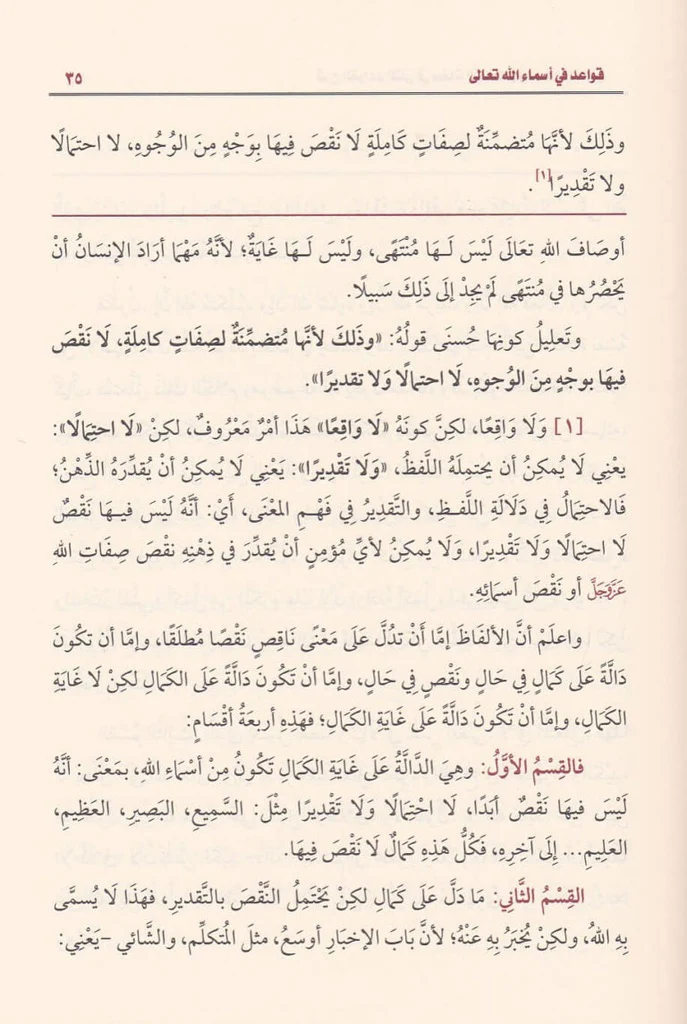 قواعد في أسماء الله تعالى ٣٥
وذَلِكَ لأنَّهَا مُتضمِّنَةٌ لصِفَاتٍ كَامِلَةٍ لَا نَقْصَ فِيهَا بِوَجْهٍ مِنَ الوُجُوهِ، لا احتِمَالًا
ولا تَقْدِيرًا[١].
أوصَافَ اللهِ تعَالَى لَيْسَ لَـهَا مُنْتَهًى، ولَيْسَ لَـهَا غَايَةٌ؛ لأنَّهُ مَهْمَا أرَادَ الإنسَانُ أنْ
يَحْصُرُها في مُنتَهًى لَمْ يجِدْ إلَى ذَلِكَ سَبيلًا.
وتَعلِيلُ كونِهَا حُسنَى قولُهُ: «وذَلكَ لأنَّها مُتضمِّنَةٌ لصفَاتٍ كامِلَةٍ، لَا نَقْصَ
فيهَا بوجْهٍ مِنَ الوُجوهِ، لَا احتمالًا وَلا تقديرًا».
[١] وَلَا وَاقِعًا، لكِنَّ كونَهُ «لَا وَاقِعًا» هَذَا أمْرٌ مَعْرُوفٌ، لكِنْ «لَا احتِمَالًا»:
يعْنِي لَا يُمكِنُ أن يحتمِلَهُ اللَّفظُ، «وَلَا تَقْدِيرًا»: يَعْنِي لَا يُمكِنُ أنْ يُقدِّرَهُ الذِّهْنُ؛
فَالاحتِمَالُ فِي دَلَالَةِ اللَّفـظِ، والتَّقدِيرُ فِي فَهْـمِ المعْنَى، أَيْ: أنَّهُ لَيْسَ فيـهَا نَقْصٌ
لَا احتِمَالًا وَلَا تَقْدِيرًا، وَلَا يُمكِنُ لأيِّ مُؤمِنٍ أنْ يُقدِّرَ في ذِهْنِهِ نقْصَ صِفَاتِ اللهِ
عَزَّوَجَلَّ أو نَقْصَ أسمَائِهِ.
واعلَمْ أنَّ الألفَاظَ إمَّا أنْ تدُلَّ عَلَى مَعْنًى نَاقِصٍ نَقْصًا مُطلَقًا، وإمَّا أن تكُونَ
دَالَّةً عَلَى كَمَالٍ فِي حَالٍ ونَقْصٍ فِي حَالٍ، وإمَّا أنْ تَكُونَ دَالَّةً عَلَى الكَمَالِ لكِنْ لَا غَايَةِ
الكَمَالِ، وإمَّا أنْ تَكُونَ دَالَّةً عَلَى غَايَةِ الكَمَالِ؛ فهَذِهِ أربعَةُ أقْسَامٍ:
فالقِسْمُ الأوَّلُ: وهيَ الدَّالَّةُ عَلَى غَايَةِ الكَمَالِ تَكُونُ مِنْ أسْمَاءِ اللهِ، بمَعْنَى: أنَّهُ
لَيْسَ فيهَا نَقْصٌ أبَدًا، لَا احْتِمَالًا وَلَا تَقْدِيرًا مِثْلَ: السَّمِيعِ، البَصِيرِ، العَظِيمِ،
العَلِيمِ... إلَى آخِرِهِ، فَكُلُّ هَذِهِ كَمَالٌ لَا نَقْصَ فِيهَا.
القِسْمُ الثَّانِي: مَا دَلَّ عَلَى كَمَالٍ لكِنْ يَحْتَمِلُ النَّقْصَ بالتَّقديرِ، فهَذَا لَا يُسمَّى
بِهِ اللهُ، ولكِنْ يُخبَرُ بِهِ عَنْهُ؛ لأنَّ بَابَ الإخبَارِ أوسَعُ، مثلَ المُتكلِّم، والشَّائي -يَعْنِي: